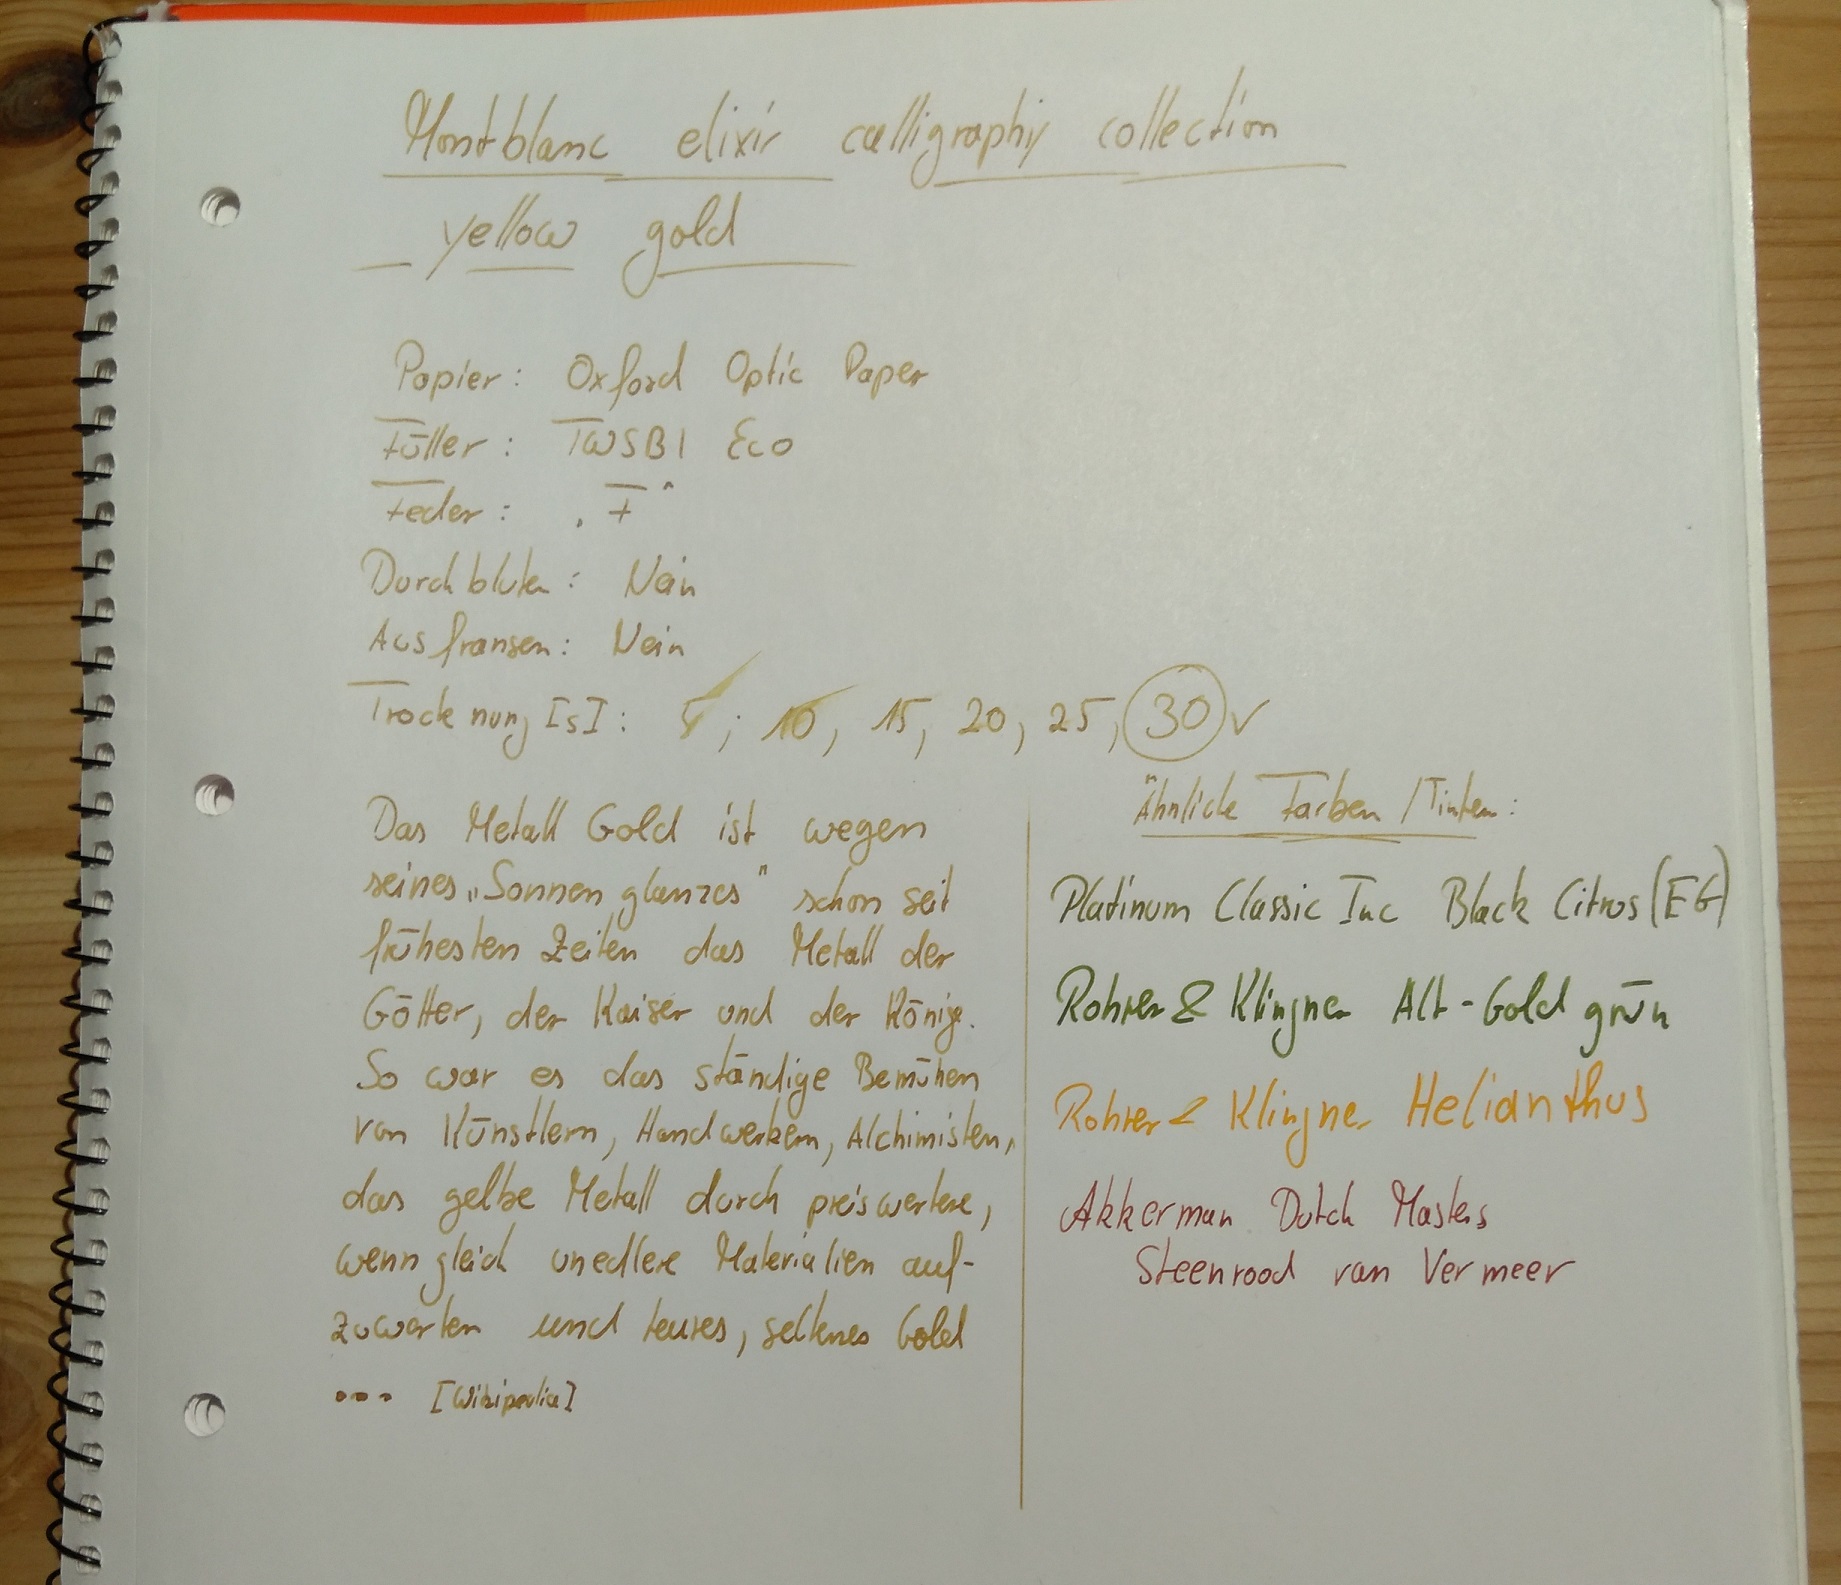 Montblanc elixir calligraphy collection
yellow gold
Papier: Oxford Optic Paper
Füller: TWSBI Eco
Feder: „F“
Durchbluten: Nein
Ausfransen: Nein
Trocknung [s]: 5, 10, 15, 20, 25, 30 ✓
Das Metall Gold ist wegen
seines „Sonnenglanzes“ schon seit
frühesten Zeiten das Metall der
Götter, der Kaiser und der Könige.
So war es das ständige Bemühen
von Künstlern, Handwerkern, Alchimisten,
das gelbe Metall durch preiswertere,
wenngleich unedlere Materialien auf-
zuwerten und teures, seltenes Gold
... [Wikipedia]
Ähnliche Farben / Tinten:
Platinum Classic Inc Black Citrus (EG)
Rohrer & Klingner Alt-Goldgrün
Rohrer & Klingner Helianthus
Akkerman Dutch Masters
Steenrood van Vermeer